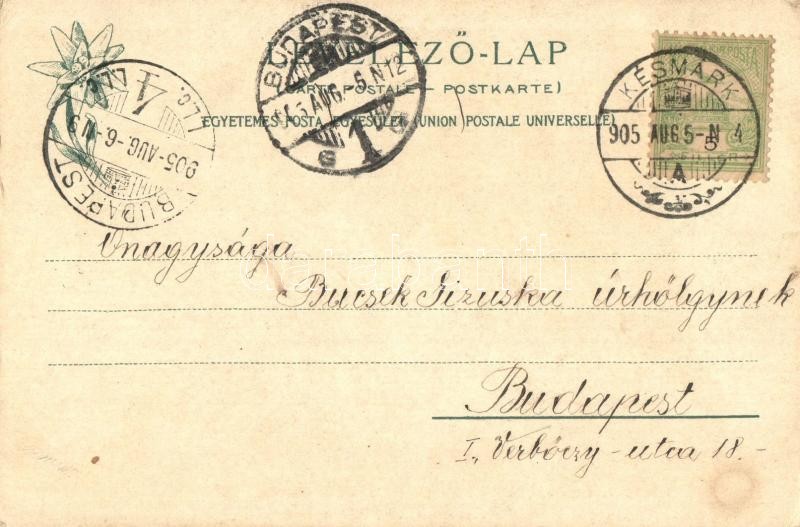 LEVELEZŐ-LAP
(CARTE POSTALE — POSTKARTE)
EGYETEMES POSTA EGYESÜLET (UNION POSTALE UNIVERSELLE)
BUDAPEST
905 AUG. 6. N12
1
G
BUDAPEST
905-AUG.-6.
4
KÉSMÁRK
905 AUG 5-N 4
A
5
Önagysága
Bucsek Gizuska úrhölgynek
Budapest
I., Verbőczy-utca 18.-